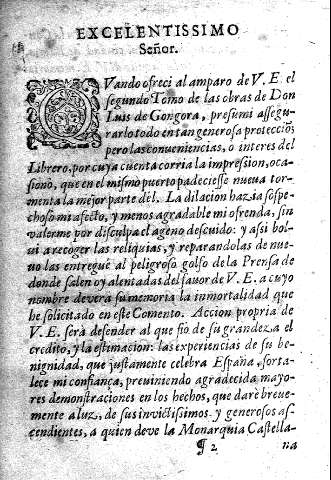 EXCELENTISSIMO
Señor.
QVando ofreci al amparo de V. E. el
segundo Tomo de las obras de Don
Luis de Gongora, presumi assegu-
rarlo todo en tan generosa proteccion,
pero las conueniencias, o interes del
Librero, por cuya cuenta corria la impression, oca-
sionò, que en el mismo puerto padeciesse nueua tor-
menta la mejor parte del. La dilacion hazia sospe-
choso mi afecto, y menos agradable mi ofrenda, sin
valerme por disculpa el ageno descuido: y assi bol-
ui a recoger las reliquias, y reparandolas de nue-
uo las entreguè al peligroso golfo de la Prensa de
donde salen oy alentadas del fauor de V. E. a cuyo
nombre deverà su memoria la inmortalidad que
he solicitado en este Comento. Accion propria de
V. E. serà defender al que fio de su grandeza el
credito, y la estimacion: las experiencias de su be-
nignidad, que justamente celebra España, forta-
lece mi confiança, preuiniendo agradecida mayo-
res demonstraciones en los hechos, que darè breue-
mente a luz, de sus invictissimos y generosos as-
cendientes, a quien deve la Monarquia Castella-
¶ 2 na